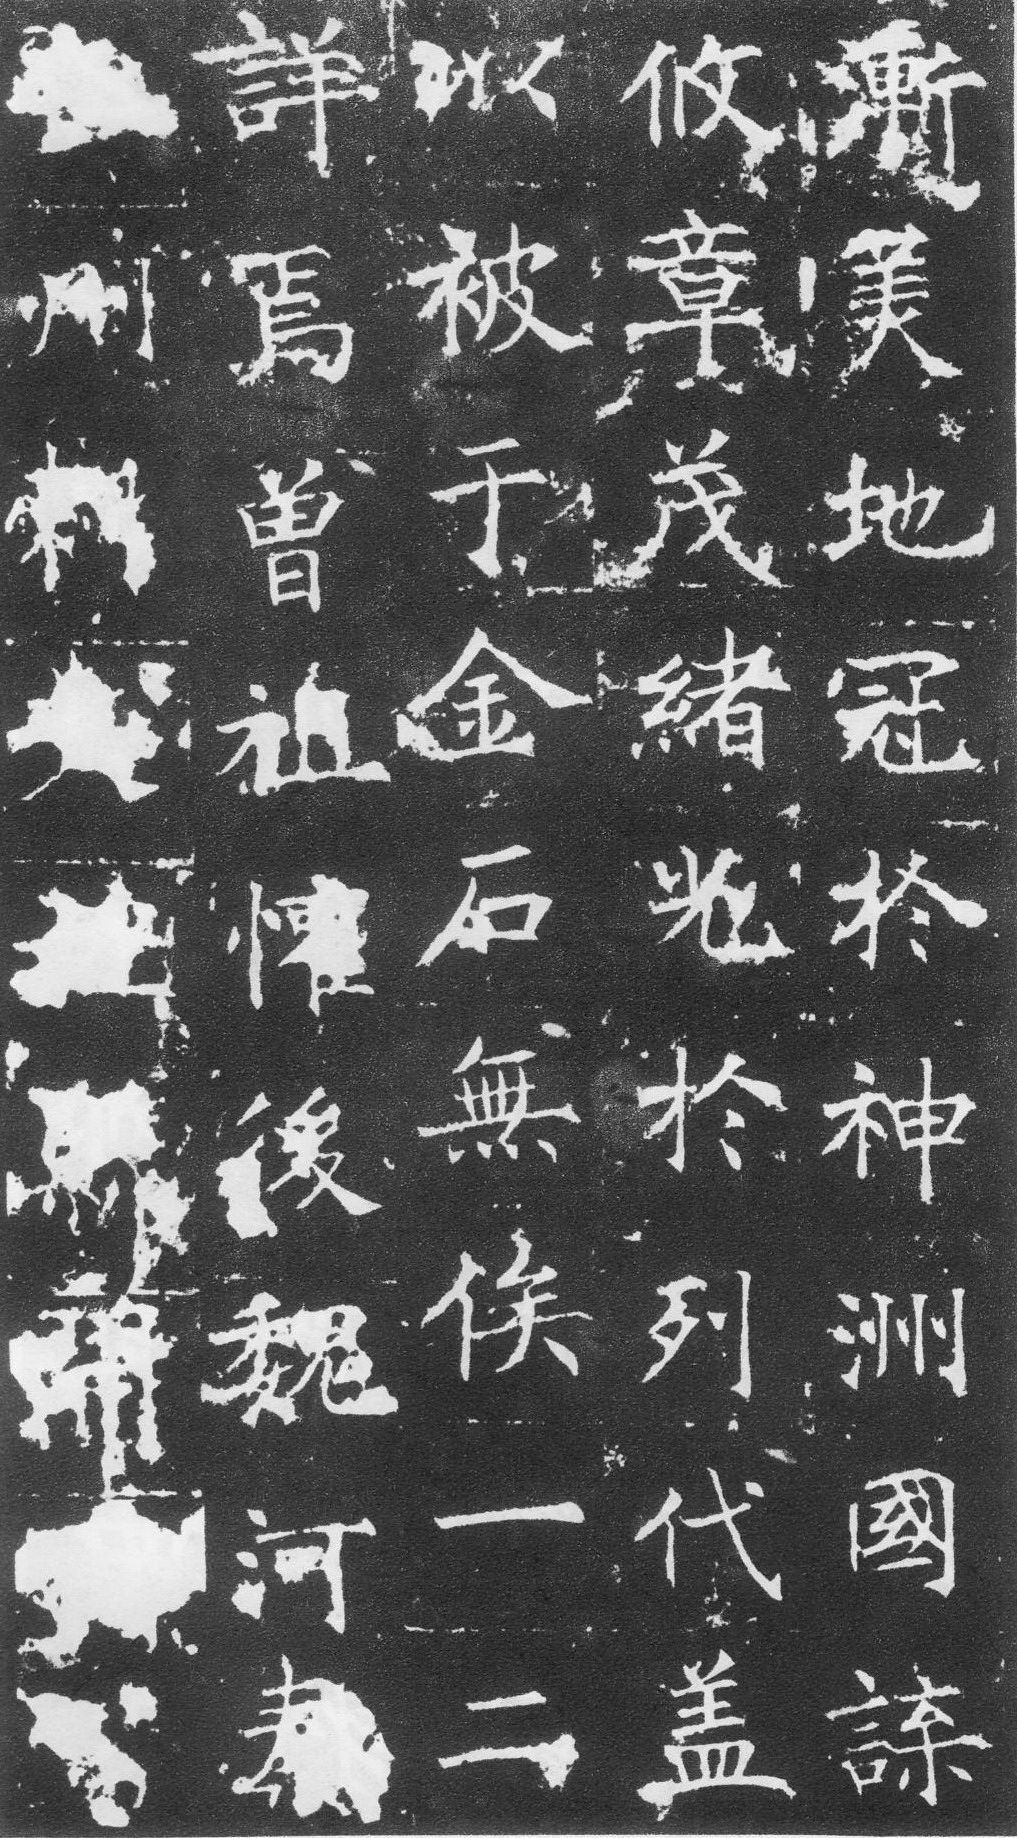 漸美地冠於神洲國諜
攸章茂緒光於列代盖
以被于金石無俟一二
詳焉曾祖懽後魏河
州刺